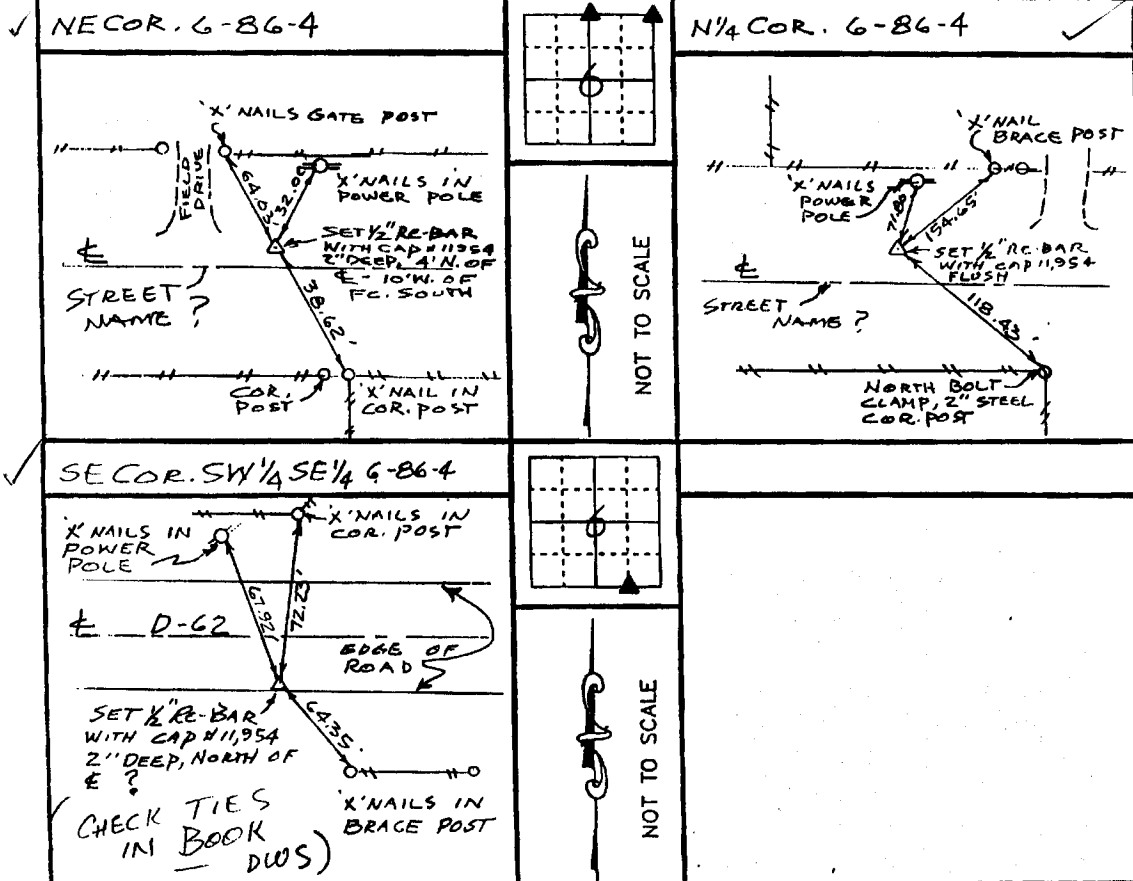 ✓ NE COR. 6-86-4
'X' NAILS GATE POST
FIELD
DRIVE
32.00'
'X' NAILS IN
POWER POLE
SET 1/2" RE-BAR
WITH CAP # 11954
2" DEEP, 4' N. OF
℄ - 10' W. OF
FC. SOUTH
℄
STREET
NAME ?
38.62'
COR.
POST
'X' NAIL IN
COR. POST
6
NOT TO SCALE
N 1/4 COR. 6-86-4 ✓
'X' NAIL
BRACE POST
'X' NAILS
POWER
POLE
71.80'
154.65'
SET 1/2" RE-BAR
WITH CAP 11,954
FLUSH
℄
STREET
NAME ?
118.43'
NORTH BOLT
CLAMP, 2" STEEL
COR. POST
✓ SE COR. SW 1/4 SE 1/4 6-86-4
'X' NAILS IN
POWER
POLE
'X' NAILS IN
COR. POST
67.92'
72.23'
℄ D-62
EDGE OF
ROAD
SET 1/2" RE-BAR
WITH CAP # 11,954
2" DEEP, NORTH OF
℄ ?
64.35'
'X' NAILS IN
BRACE POST
(CHECK TIES
IN BOOK
DWS)
6
NOT TO SCALE